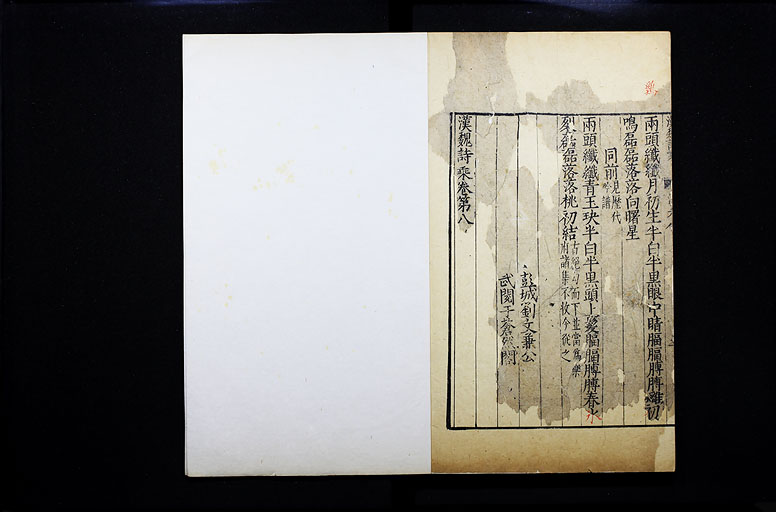 兩頭纖纖月初生半白半黑眼中睛腷腷膊膊雞初
鳴磊磊落落向曙星
同前見歷代吟譜
兩頭纖纖青玉玦半白半黑頭上髮腷腷膊膊春氷
裂磊磊落落桃初結古絶句而下並當爲樂府諸集不收今從之
彭城劉文
武關子蒼
漢魏詩乘卷第八